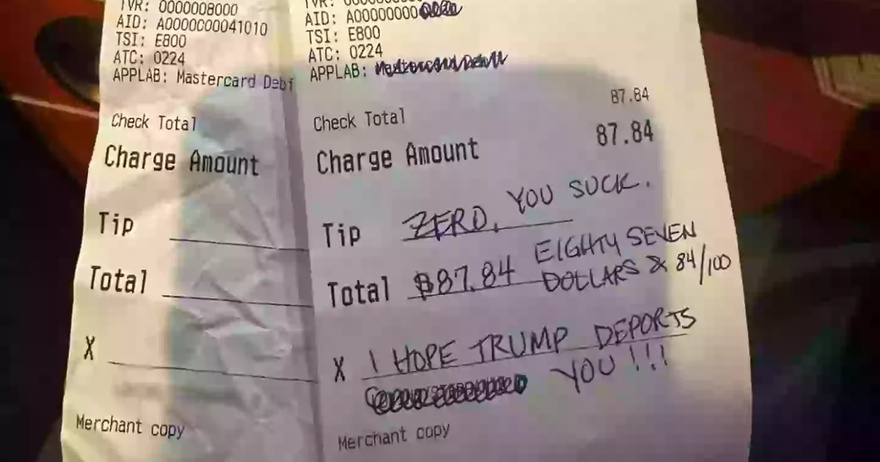 TVR: 0000008000
AID: A0000000041010
TSI: E800
ATC: 0224
APPLAB: Mastercard Deb
Check Total
Charge Amount
Tip
Total
X
Merchant copy
AID: A00000000
TSI: E800
ATC: 0224
APPLAB:
Check Total 87.84
Charge Amount 87.84
Tip ZERO, YOU SUCK.
Total $87.84 EIGHTY SEVEN
DOLLARS & 84/100
X I HOPE TRUMP DEPORTS
YOU!!!
Merchant copy